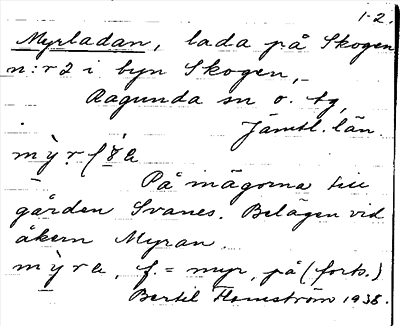 1-2.
Myrladan, lada på Skogen
n:r 2 i byn Skogen,
Ragunda sn o. tg,
Jämtl. län.
På mägorna till
gården Svanes. Belägen vid
åkern Myran.
mỳra, f. = myr, på (forts.)
Bertil Flemström 1938.